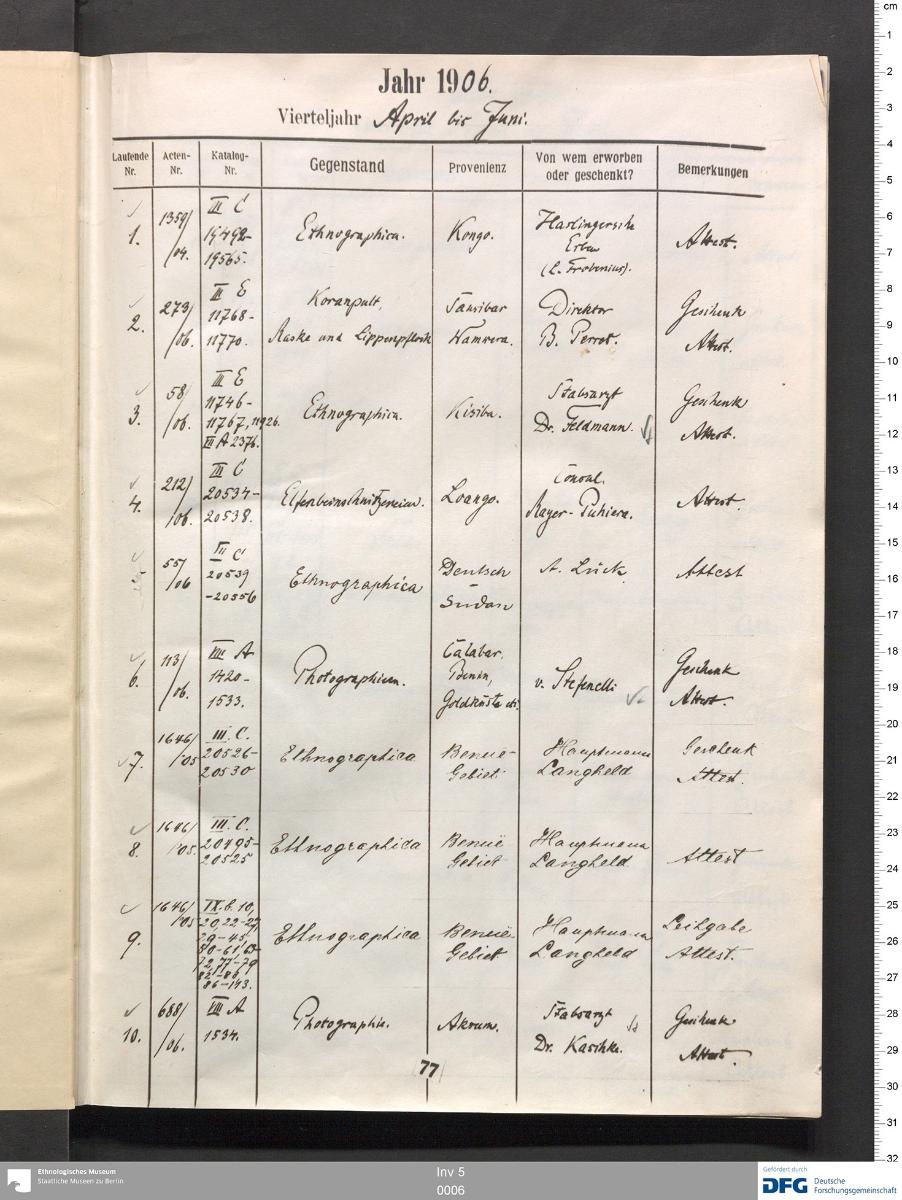 Jahr 1906.
Vierteljahr April bis Juni.
Laufende Nr. Acten-Nr. Katalog-Nr. Gegenstand Provenienz Von wem erworben oder geschenkt? Bemerkungen
1. 1359/04. III C 19492-19565. Ethnographica. Kongo. Erben (L. Frobenius). Attest.
2. 273/06. III E 11768-11770. Koranpult, Maske und Lippenpflock Sansibar Wamwera. Direktor B. Perrot. Geschenk Attest.
3. 58/06. III E 11746-11767, 11926. III A 2376. Ethnographica. Kisiba. Stabsarzt Dr. Feldmann. Geschenk Attest.
4. 212/06. III C 20534-20538. Elfenbeinschnitzereien. Loango. Consul. Attest.
55/06 III C 20539-20556 Ethnographica Deutsch-Sudan A. Lück Attest
6. 113/06. VIII A 1420-1533. Photographien. Calabar, Benin, Goldküste etc. v. Stefenelli Geschenk Attest.
7. 1646/05 III. C. 20526-20530 Ethnographica Benuë-Gebiet Hauptmann Langheld Geschenk Attest.
8. 1646/05. III. C. 20495-20525 Ethnographica Benuë Gebiet Hauptmann Langheld Attest
9. 1646/05 IX.b. 10, 20, 22-27, 29-45, 63-72, 77-79 86-143. Ethnographica Benuë-Gebiet Hauptmann Langheld Leihgabe Attest.
10. 688/06. VIII A 1534. Photographie. Stabsarzt Dr. Geschenk. Attest.
77
cm
1
2
3
4
5
6
7
8
9
10
11
12
13
14
15
16
17
18
19
20
21
22
23
24
25
26
27
28
29
30
31
32
Ethnologisches Museum
Staatliche Museen zu Berlin
Inv 5
0006
Gefördert durch
DFG Deutsche
Forschungsgemeinschaft